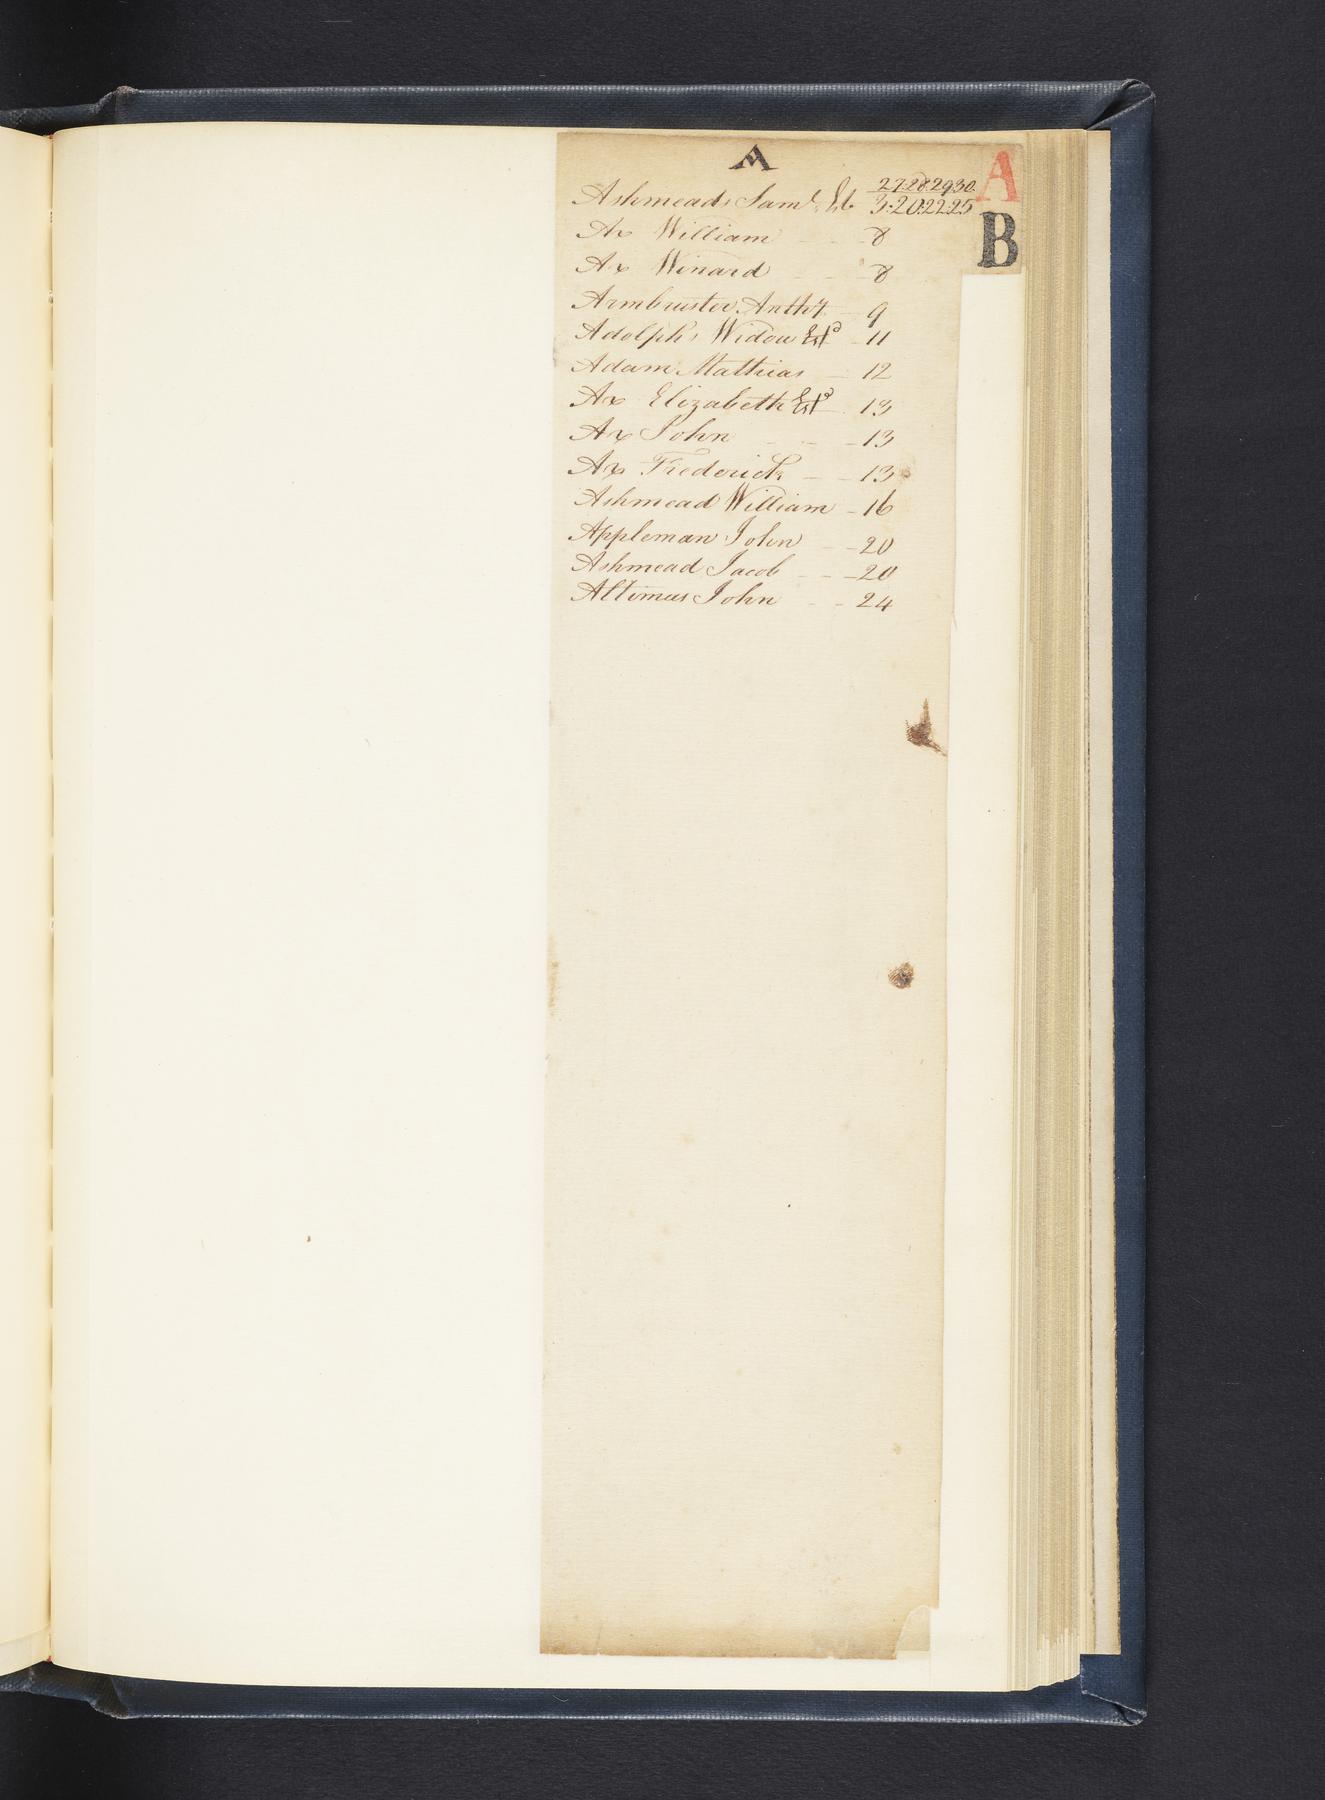 A
A
B
27.28.29.30.
Ashmeads Saml. Est. 3.20.22.25
Ax William - - 8
Ax Winard - - 8
Armbruster Anthy. - 9
Adolphs Widow Estd - 11
Adam Mathias - 12
Ax Elizabeth Estd. 13
Ax John - - - 13
Ax Frederick - - 13
Ashmead William - 16
Appleman John - - 20
Ashmead Jacob - - 20
Altimus John - - 24